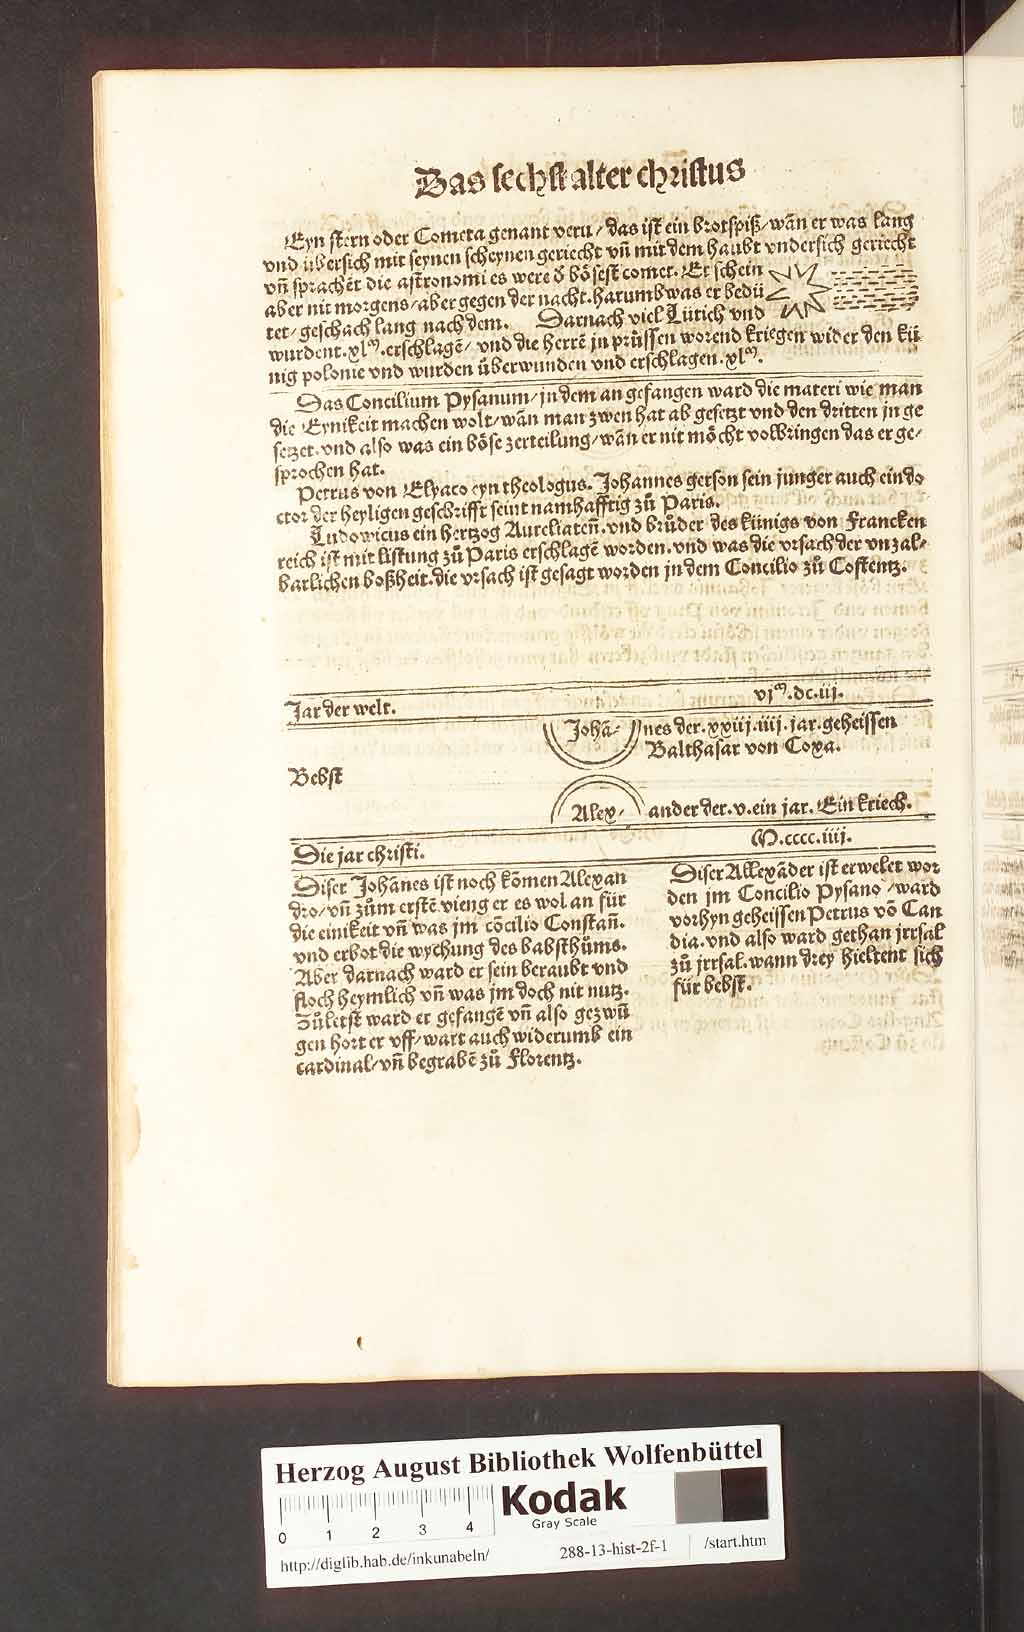 Das sechst alter christus
Eyn stern oder Cometa genant veru / das ist ein brotspiß / wañ er was lang
vnd übersich mit seynen scheynen geriecht vñ mit dem haubt vndersich geriecht
vñ sprachẽt die astronomi es were d̕ bősest comet. Er schein
aber nit morgens / aber gegen der nacht. harumb was er bedü
tet / geschach lang nach dem. Darnach viel Lütich vnd
wurdent .xlᵐ. erschlagẽ / vnd die herrẽ jn prüssen worend kriegen wider den kü
nig polonie vnd wurden überwunden vnd erschlagen .xlᵐ.
Das Concilium Pysanum / jn dem an gefangen ward die materi wie man
die Eynikeit machen wolt / wañ man zwen hat ab gesetzt vnd den dritten jn ge
setzet. vnd also was ein böse zerteilung / wañ er nit möcht volbringen das er ge /
sprochen hat.
Petrus von Elyaco eyn theologus. Johannes gerson sein junger auch ein do
ctor der heyligen geschrifft seint namhafftig zů Paris.
Ludowicus ein hertzog Aureliateñ. vnd brůder des künigs von Francken
reich ist mit listung zů Paris erschlagẽ worden. vnd was die vrsach der vnzal /
barlichen boßheit. die vrsach ist gesagt worden jn dem Concilio zů Costentz.
Jar der welt. vjᵐ.dc.iij.
Johã / nes der .xxiij. iiij. jar. geheissen
Balthasar von Coxa.
Bebst
Alex / ander der .v. ein jar. Ein kriech.
Die jar christi. M.cccc.iiij.
Diser Johãnes ist noch kömen Alexan
dro / vñ zům erstẽ vieng er es wol an für
die einikeit vñ was jm cõcilio Constañ.
vnd erbot die wychung des babsthůms.
Aber darnach ward er sein beraubt vnd
floch heymlich vñ was jm doch nit nutz.
Zůletst ward er gefangẽ vñ also gezwũ
gen hort er vff / wart auch widerumb ein
cardinal / vñ begrabẽ zů Florentz.
Diser Allexãder ist erwelet wor
den jm Concilio Pysano / ward
vorhyn geheissen Petrus võ Can
dia. vnd also ward gethan jrrsal
zů jrrsal. wann drey hieltent sich
für bebst.
Herzog August Bibliothek Wolfenbüttel
0 1 2 3 4
Kodak
Gray Scale
http://diglib.hab.de/inkunabeln/ 288-13-hist-2f-1 /start.htm